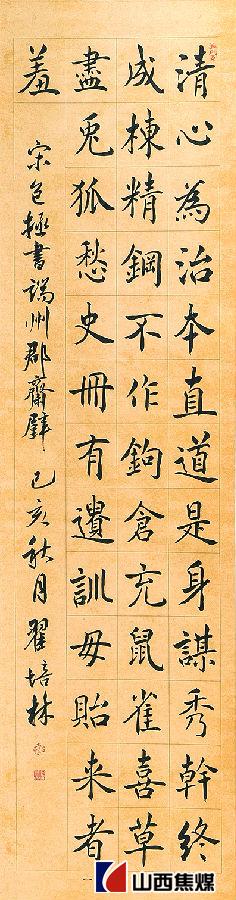 清心為治本直道是身謀秀幹終
成棟精鋼不作鉤倉充鼠雀喜草
盡兔狐愁史冊有遺訓毋貽来者
羞
宋包拯書端州郡齋壁 己亥秋月 翟培林
山西焦煤